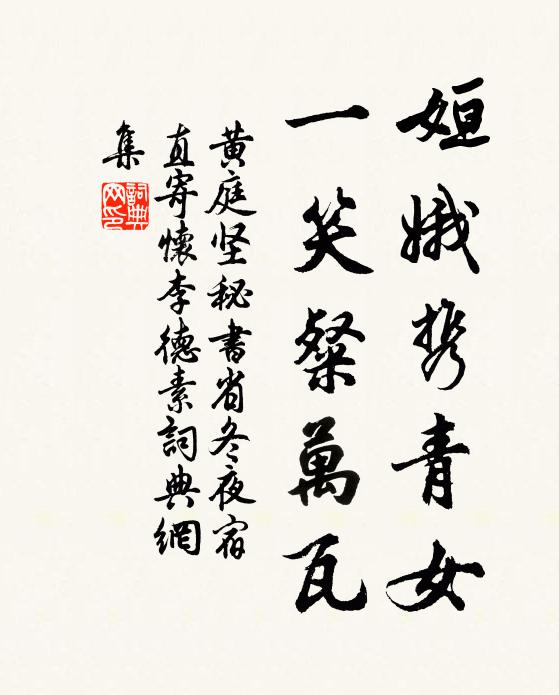 姮娥携青女
一笑粲萬瓦
黄庭坚秘書省冬夜宿
直寄懷李德素詞典網
集
詞典
网印